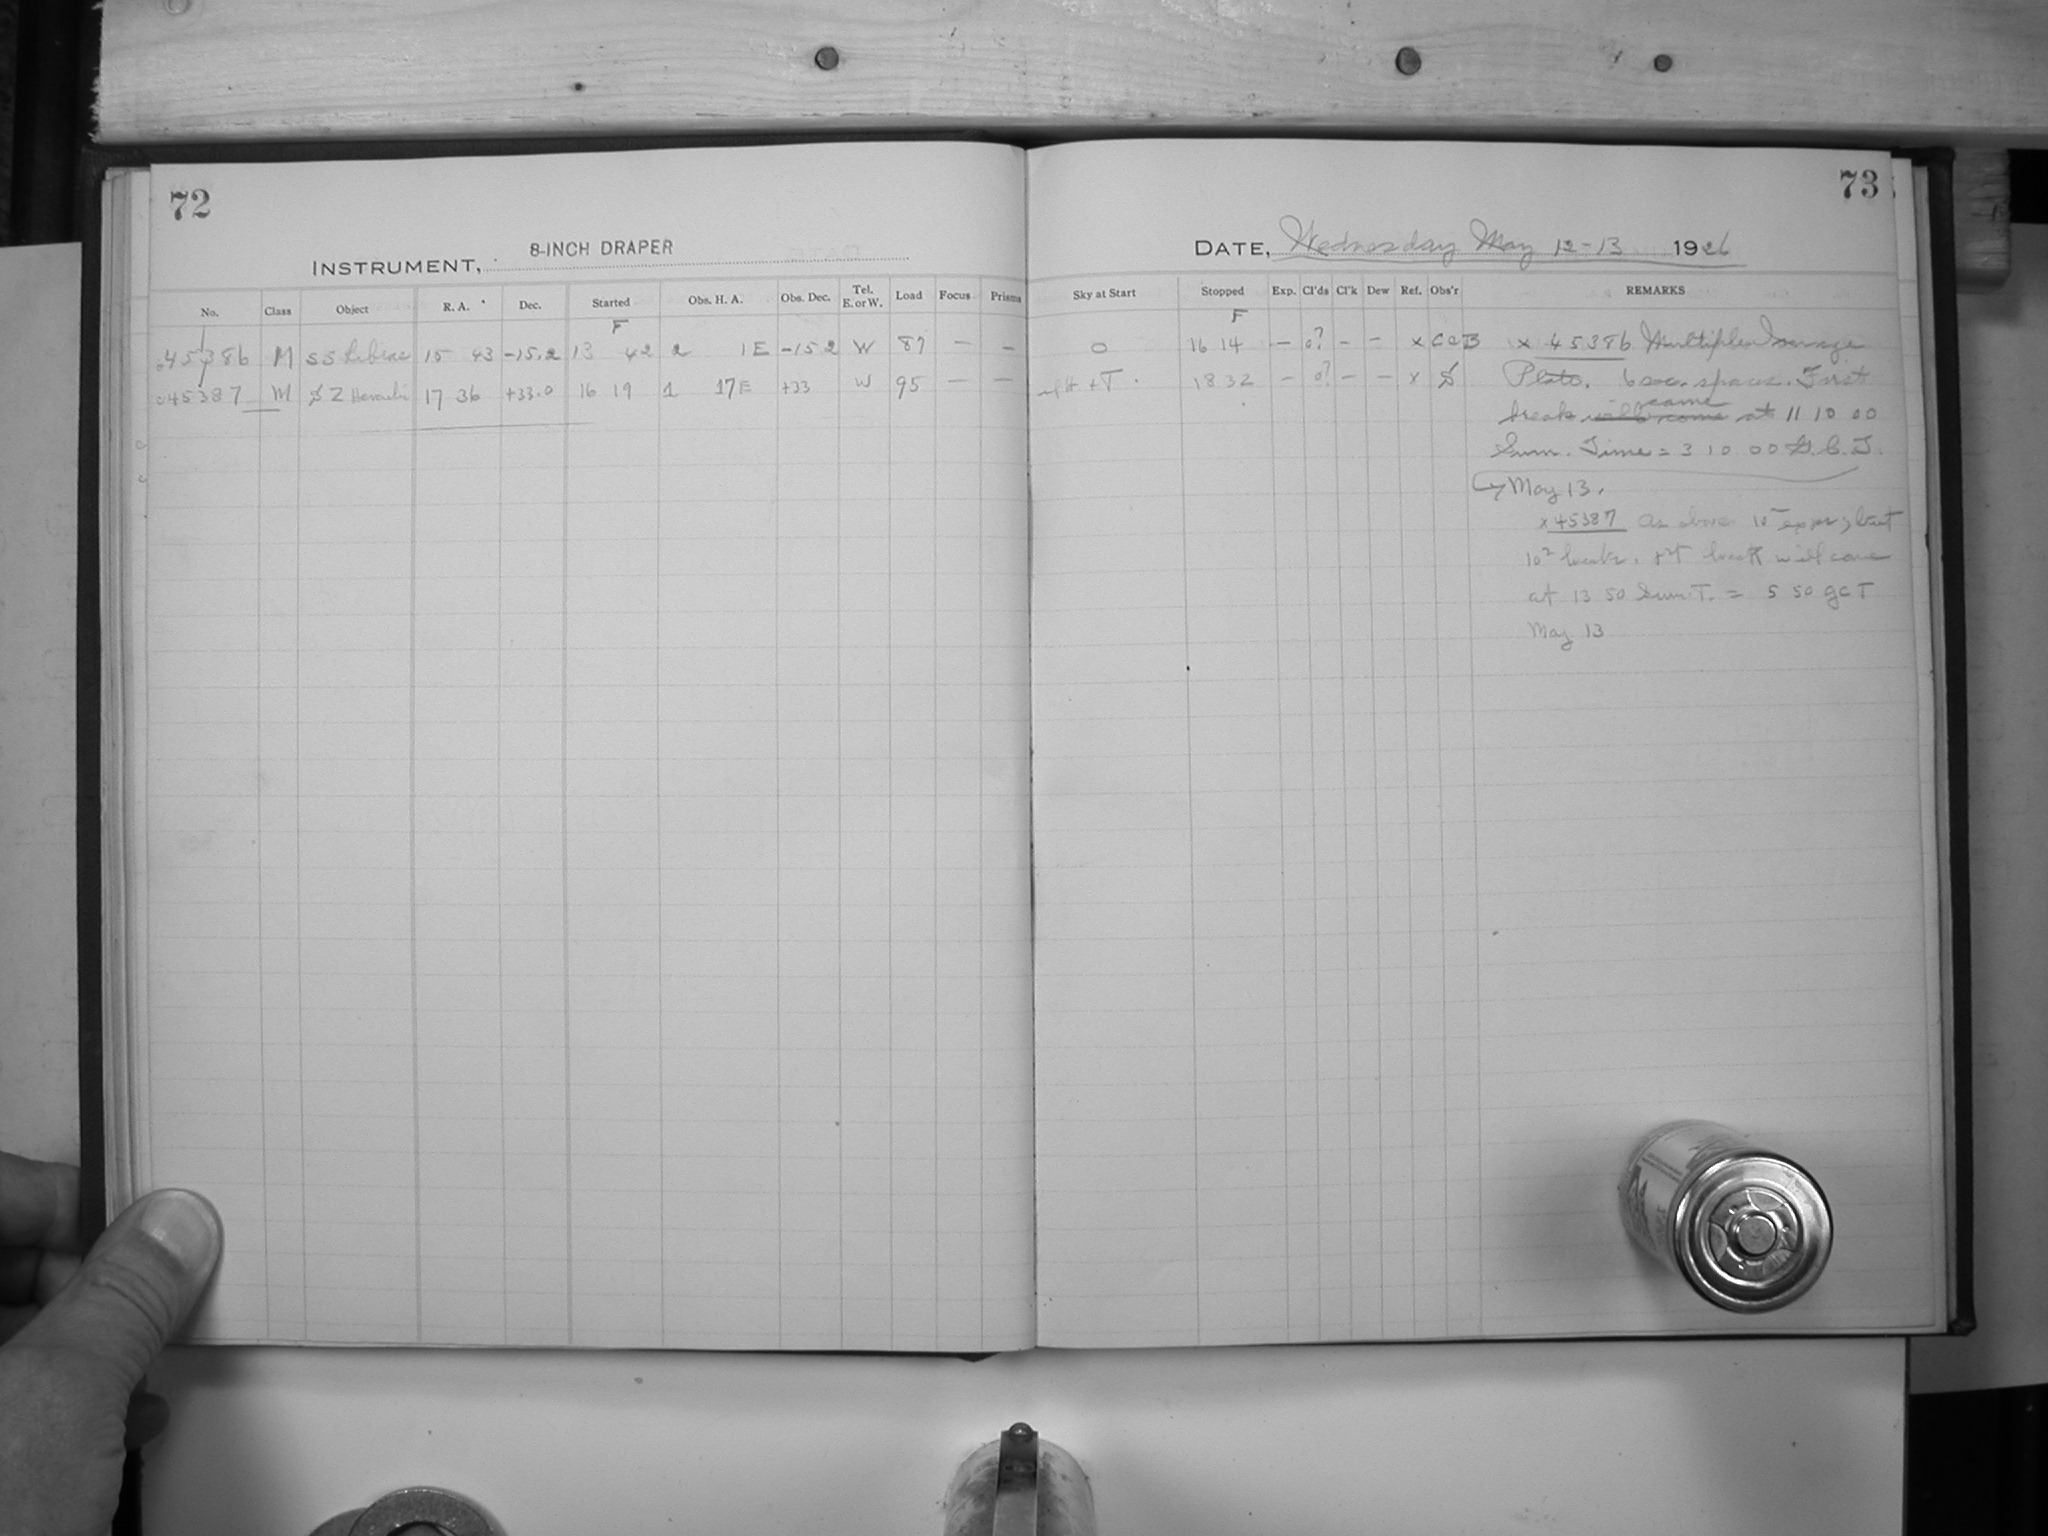 72
INSTRUMENT, 8-INCH DRAPER
No. Class Object R. A. Dec. Started Obs. H. A. Obs. Dec. Tel. E. or W. Load Focus Prisms
F
45386 M SS Librae 15 43 -15.2 13 42 2 1E -15 2 W 87 — —
45387 M Z 17 36 +33.0 16 19 1 17E +33 W 95 — —
73
DATE, Wednesday May 12-13 1926
Sky at Start Stopped Exp. Cl'ds Cl'k Dew Ref. Obs'r REMARKS
F
0 16 14 — 0? — — x x 45386 Multiple Image
+T. 18 32 — 0? — — x Plate. 6 sec. space. First
break will come came at 11 10 00
Sum. Time = 3 10 00 G.C.T.
May 13.
x 45387 as above 10 expos; but
10 breaks. 1st break will come
at 13 50 Sum. T. = 5 50 GCT
May 13